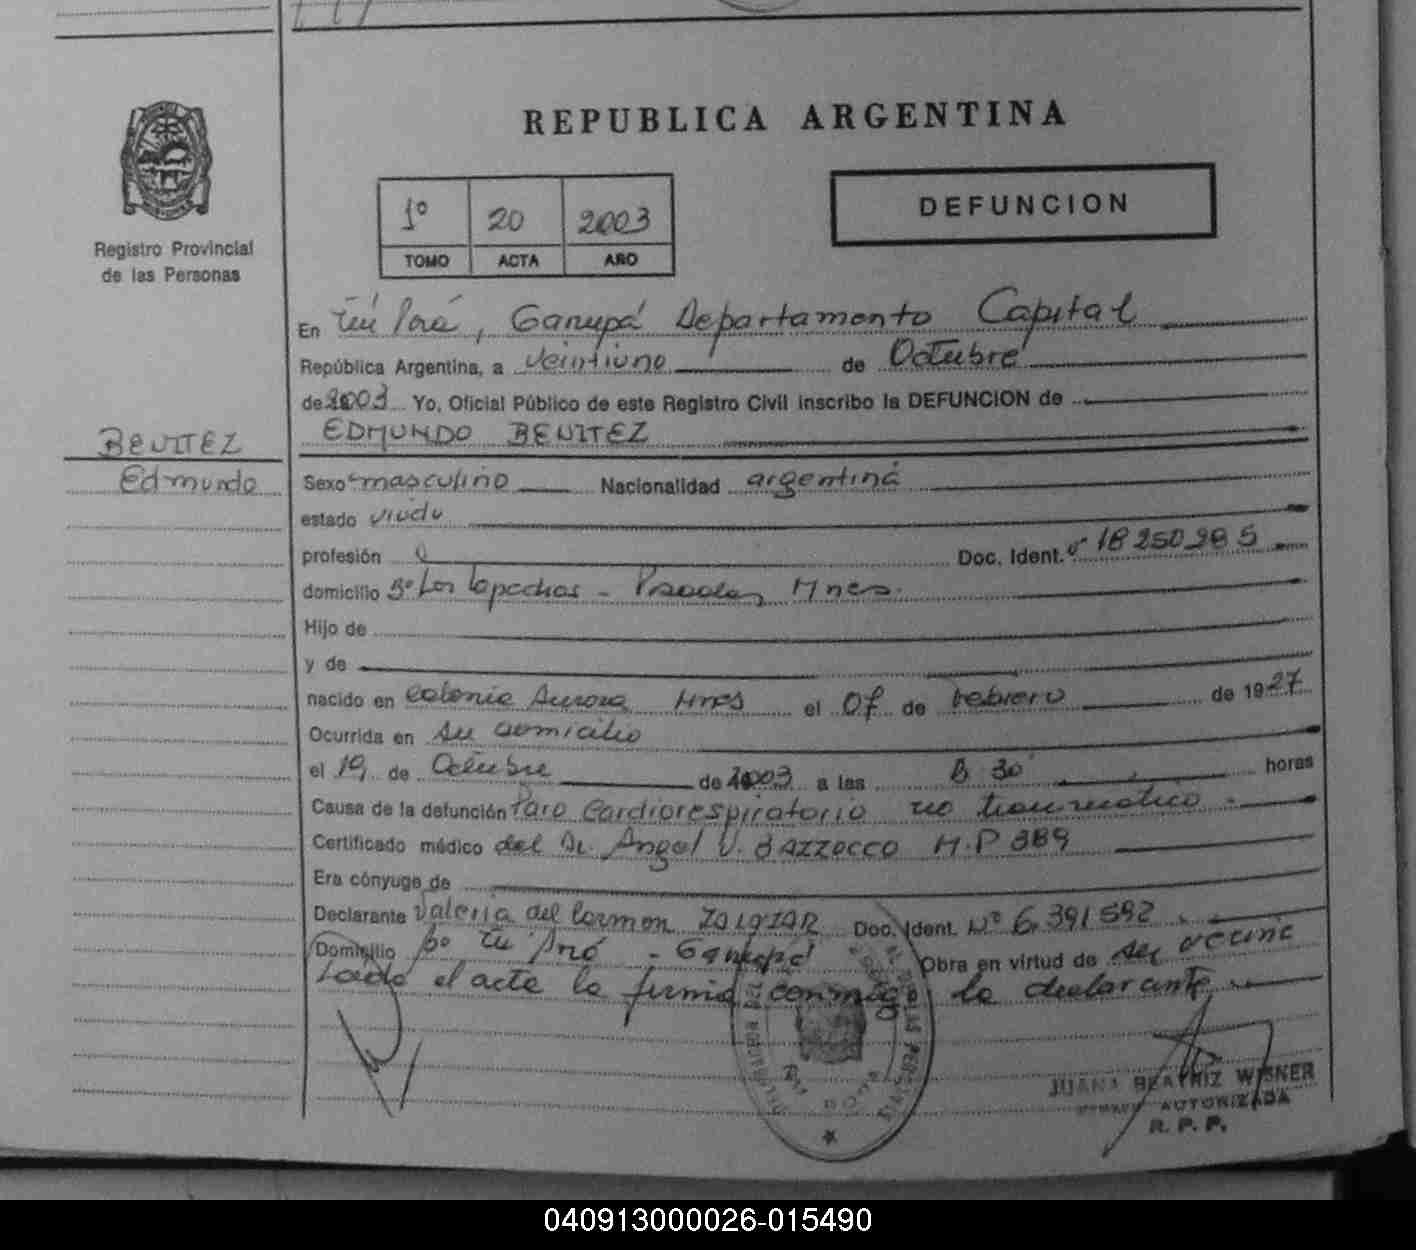 REPUBLICA ARGENTINA
Registro Provincial
de las Personas
1º 20 2003
TOMO ACTA AÑO
DEFUNCION
En Garupá Departamento Capital
República Argentina, a veintiuno de Octubre
de 2003 Yo, Oficial Público de este Registro Civil inscribo la DEFUNCION de
BENITEZ
EDMUNDO BENITEZ
Edmundo
Sexo masculino Nacionalidad argentina
estado viudo
profesión Doc. Ident. 18 250 285
domicilio Bº Los lapachos - Posadas Mnes.
Hijo de
y de
nacido en Colonia Aurora Mnes el 07 de febrero de 1927
Ocurrida en su domicilio
el 19 de Octubre de 2003 a las 8 30 horas
Causa de la defunción Paro Cardiorespiratorio no traumático
Certificado médico del Dr. Angel V. BAZZOCCO M.P 389
Era cónyuge de
Declarante del Carmen Doc. Ident. Nº 6.391 592
Domicilio Bº - Garupá Obra en virtud de ser vecina
el acta la firma conmigo la declarante
JUANA BEATRIZ WISNER
FIRMA AUTORIZADA
R. P. P.
040913000026-015490